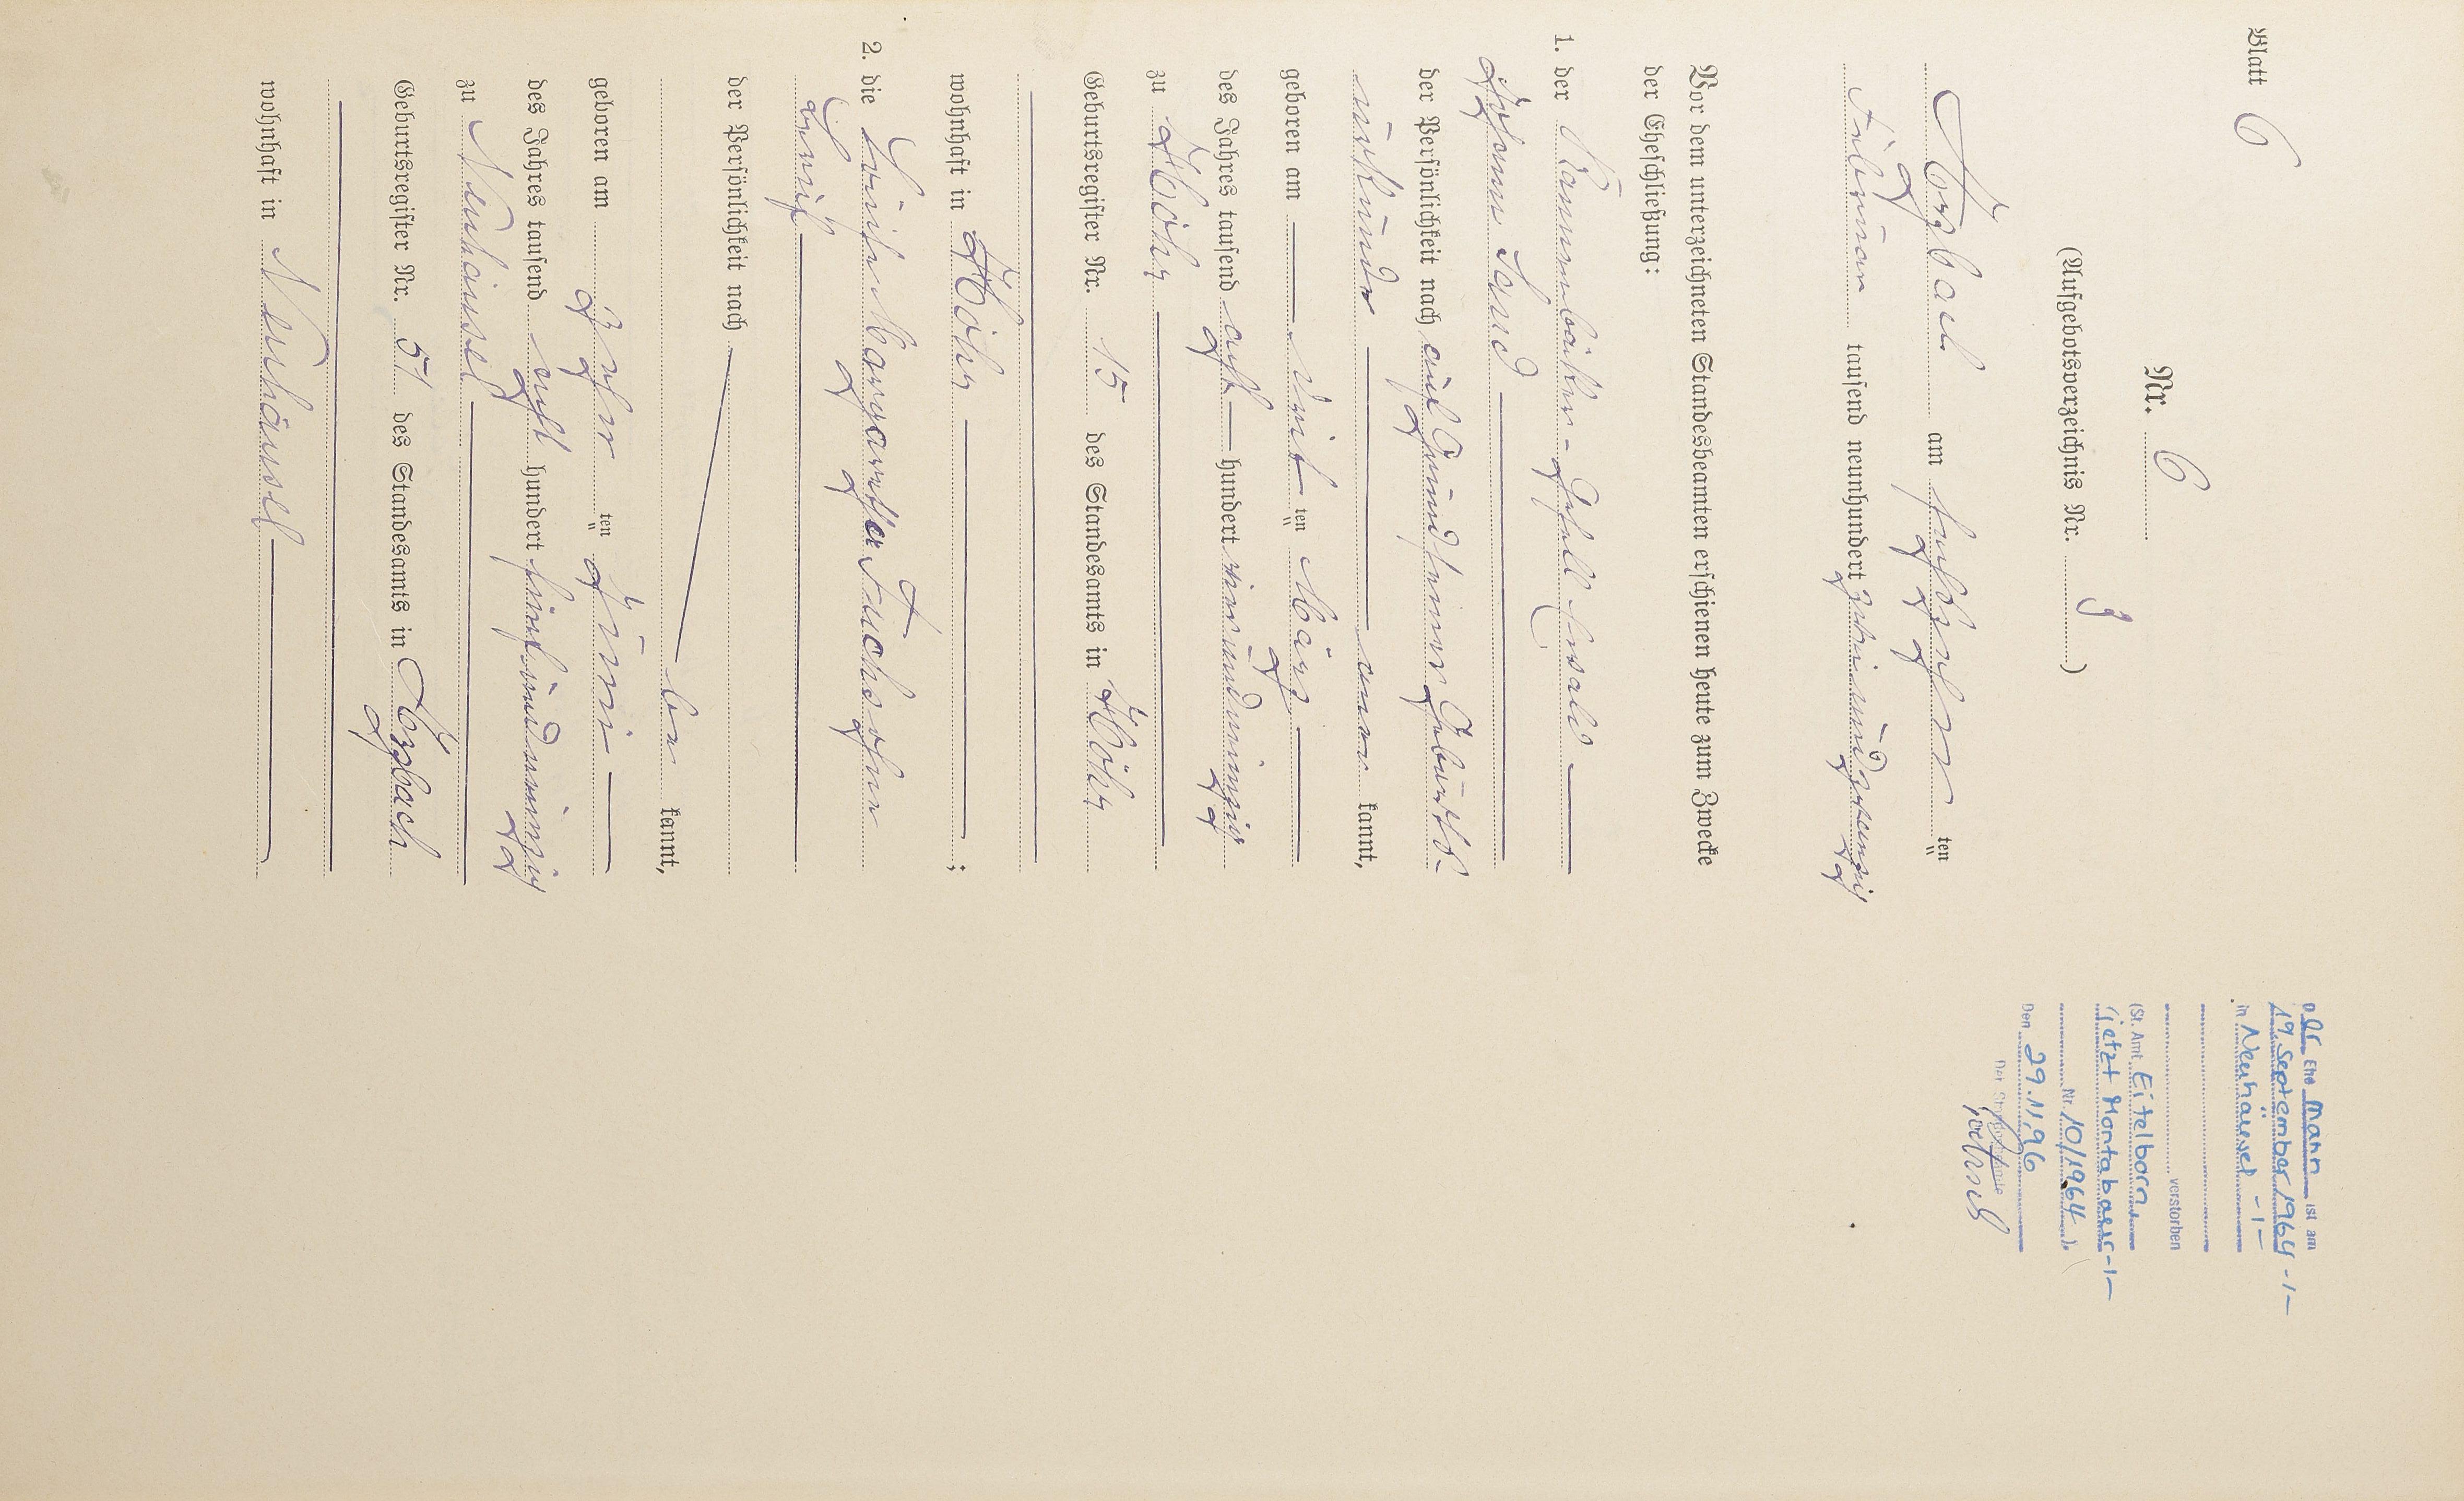 Blatt 6
Nr. 6
(Aufgebotsverzeichnis Nr. 9)
Arzbach am sechszehnten
Februar tausend neunhundert zweiundzwanzig
Vor dem unterzeichneten Standesbeamten erschienen heute zum Zwecke
der Eheschließung:
1. der Kannenbäcker-
Johann
der Persönlichkeit nach auf Grund seiner Geburts-
urkunde aner kannt,
geboren am ten März
des Jahres tausend acht hundert vierundneunzig
zu Höhr
Geburtsregister Nr. 15 des Standesamts in Höhr
wohnhaft in Höhr ;
2. die Luise Margaretha Fuchs ohne
der Persönlichkeit nach
be kannt,
geboren am ten Juni
des Jahres tausend acht hundert fünfundneunzig
zu Neuhäusel
Geburtsregister Nr. 51 des Standesamts in Arzbach
wohnhaft in Neuhäusel
Der Ehe mann ist am
19. September 1964 -1-
in Neuhäusel -1-
verstorben
(St. Amt Eitelborn,
jetzt Montabaur -1-
Nr. 10/1964).
Den 29.11.96
Der Standesbeamte